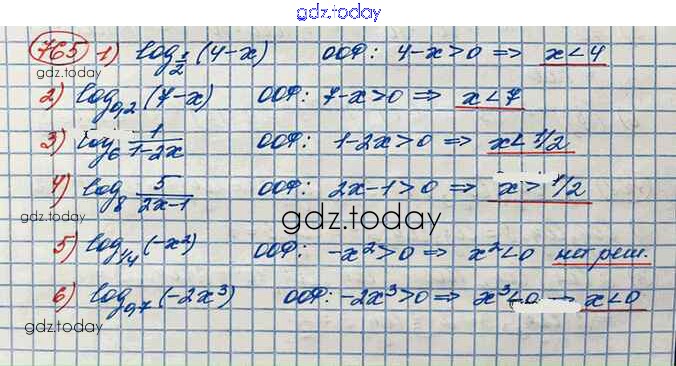 gdz.today
765 1) log_{1/2} (4-x) ООФ: 4-x>0 => x<4
gdz.today
2) log_{0,2} (7-x) ООФ: 7-x>0 => x<7
3) log_6 1/(1-2x) ООФ: 1-2x>0 => x<1/2
4) log_8 5/(2x-1) ООФ: 2x-1>0 => x>1/2
gdz.today
gdz.today
5) log_{1/4} (-x²) ООФ: -x²>0 => x²<0 нет реш.
6) log_{0,7} (-2x³) ООФ: -2x³>0 => x³<0 → x<0
gdz.today
gdz.today